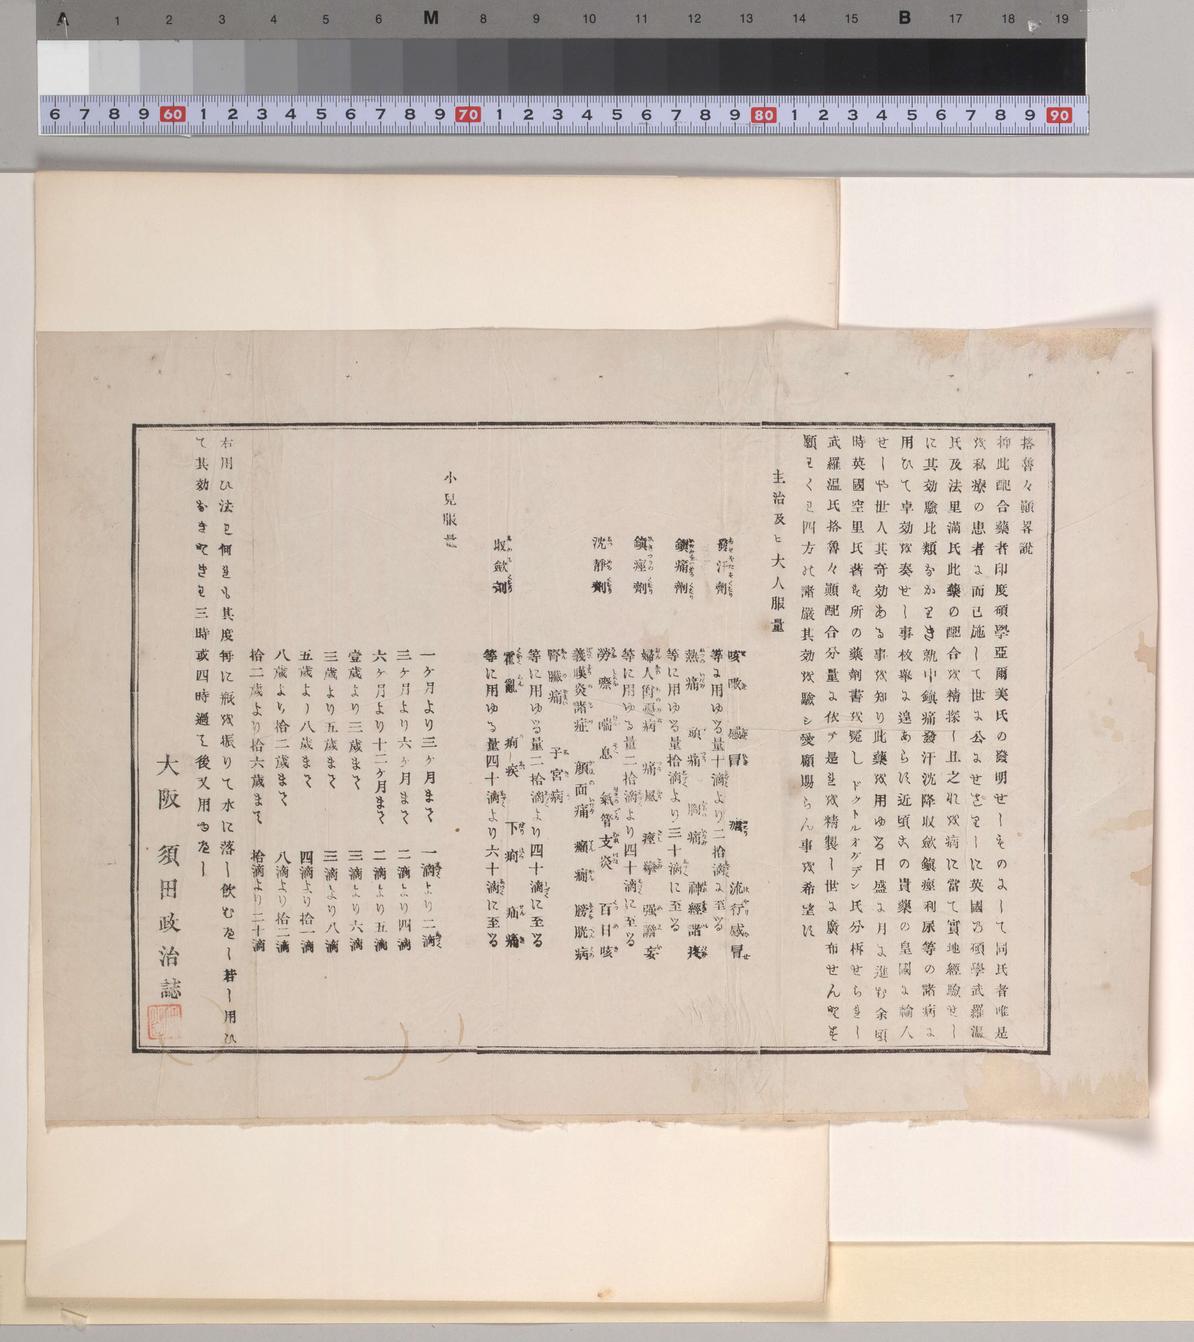 A 1 2 3 4 5 6 M 8 9 10 11 12 13 14 15 B 17 18 19
6 7 8 9 60 1 2 3 4 5 6 7 8 9 70 1 2 3 4 5 6 7 8 9 80 1 2 3 4 5 6 7 8 9 90
挌魯々顚畧説
抑此配合藥者印度碩學亞爾美氏の發明せしものにして同氏者唯是
を私療の患者に而已施して世に公にせざりしに英國の碩學武羅温
氏及法里滿氏此藥の配合を精探し且之れを病に當て實地經驗せし
に其効驗比類なかりき就中鎭痛發汗沈降収斂鎭痙利尿等の諸病に
用ひて卓効を奏せし事枚擧に遑あらす近頃此の貴藥の皇國に輸入
せしや世人其奇効ある事を知り此藥を用ゆる日盛に月に進む余頃
時英國空里氏著す所の藥劑書を寃し ドクトルオガデン氏分柝せられし
武羅温氏挌魯々顚配合分量に依テ是れを精製し世に廣布せんとす
願わくは四方の諸嚴其効を驗シ愛顧賜らん事を希望す
主治及ヒ大人服量
發汗劑
咳嗽 感冒 流行感冒
等に用ゆる量十滴より二拾滴に至る
鎭痛劑
熱痛 頭痛 胸痛 神經諸疾
等に用ゆる量拾滴より三十滴に至る
鎭痙劑
婦人 病 痛風 痙攣 强譫妄
等に用ゆる量二拾滴より四十滴に至る
沈靜劑
勞瘵 喘息 氣管支炎 百日咳
義膜炎諸症 顔面痛 癲癇 膀胱病
腎臓痛 子宮病
等に用ゆる量二拾滴より四十滴に至る
収斂劑
霍亂 痢疾 下痢 疝痛
等に用ゆる量四十滴より六十滴に至る
小兒服量
一ケ月より三ケ月まて 一滴より二滴
三ケ月より六ヶ月まて 二滴より四滴
六ケ月より十二ヶ月まて 二滴より五滴
壹歳より三歳まて 三滴より六滴
三歳より五歳まて 三滴より八滴
五歳より八歳まて 四滴より拾一滴
八歳より拾二歳まて 八滴より拾二滴
拾二歳より拾六歳まて 拾滴より二十滴
右用ひ法は何れも其度毎に瓶を振りて水に落し飲むべし若し用ひ
て其効なきときは三時或四時過て後又用ゆべし
大阪 須田政治誌